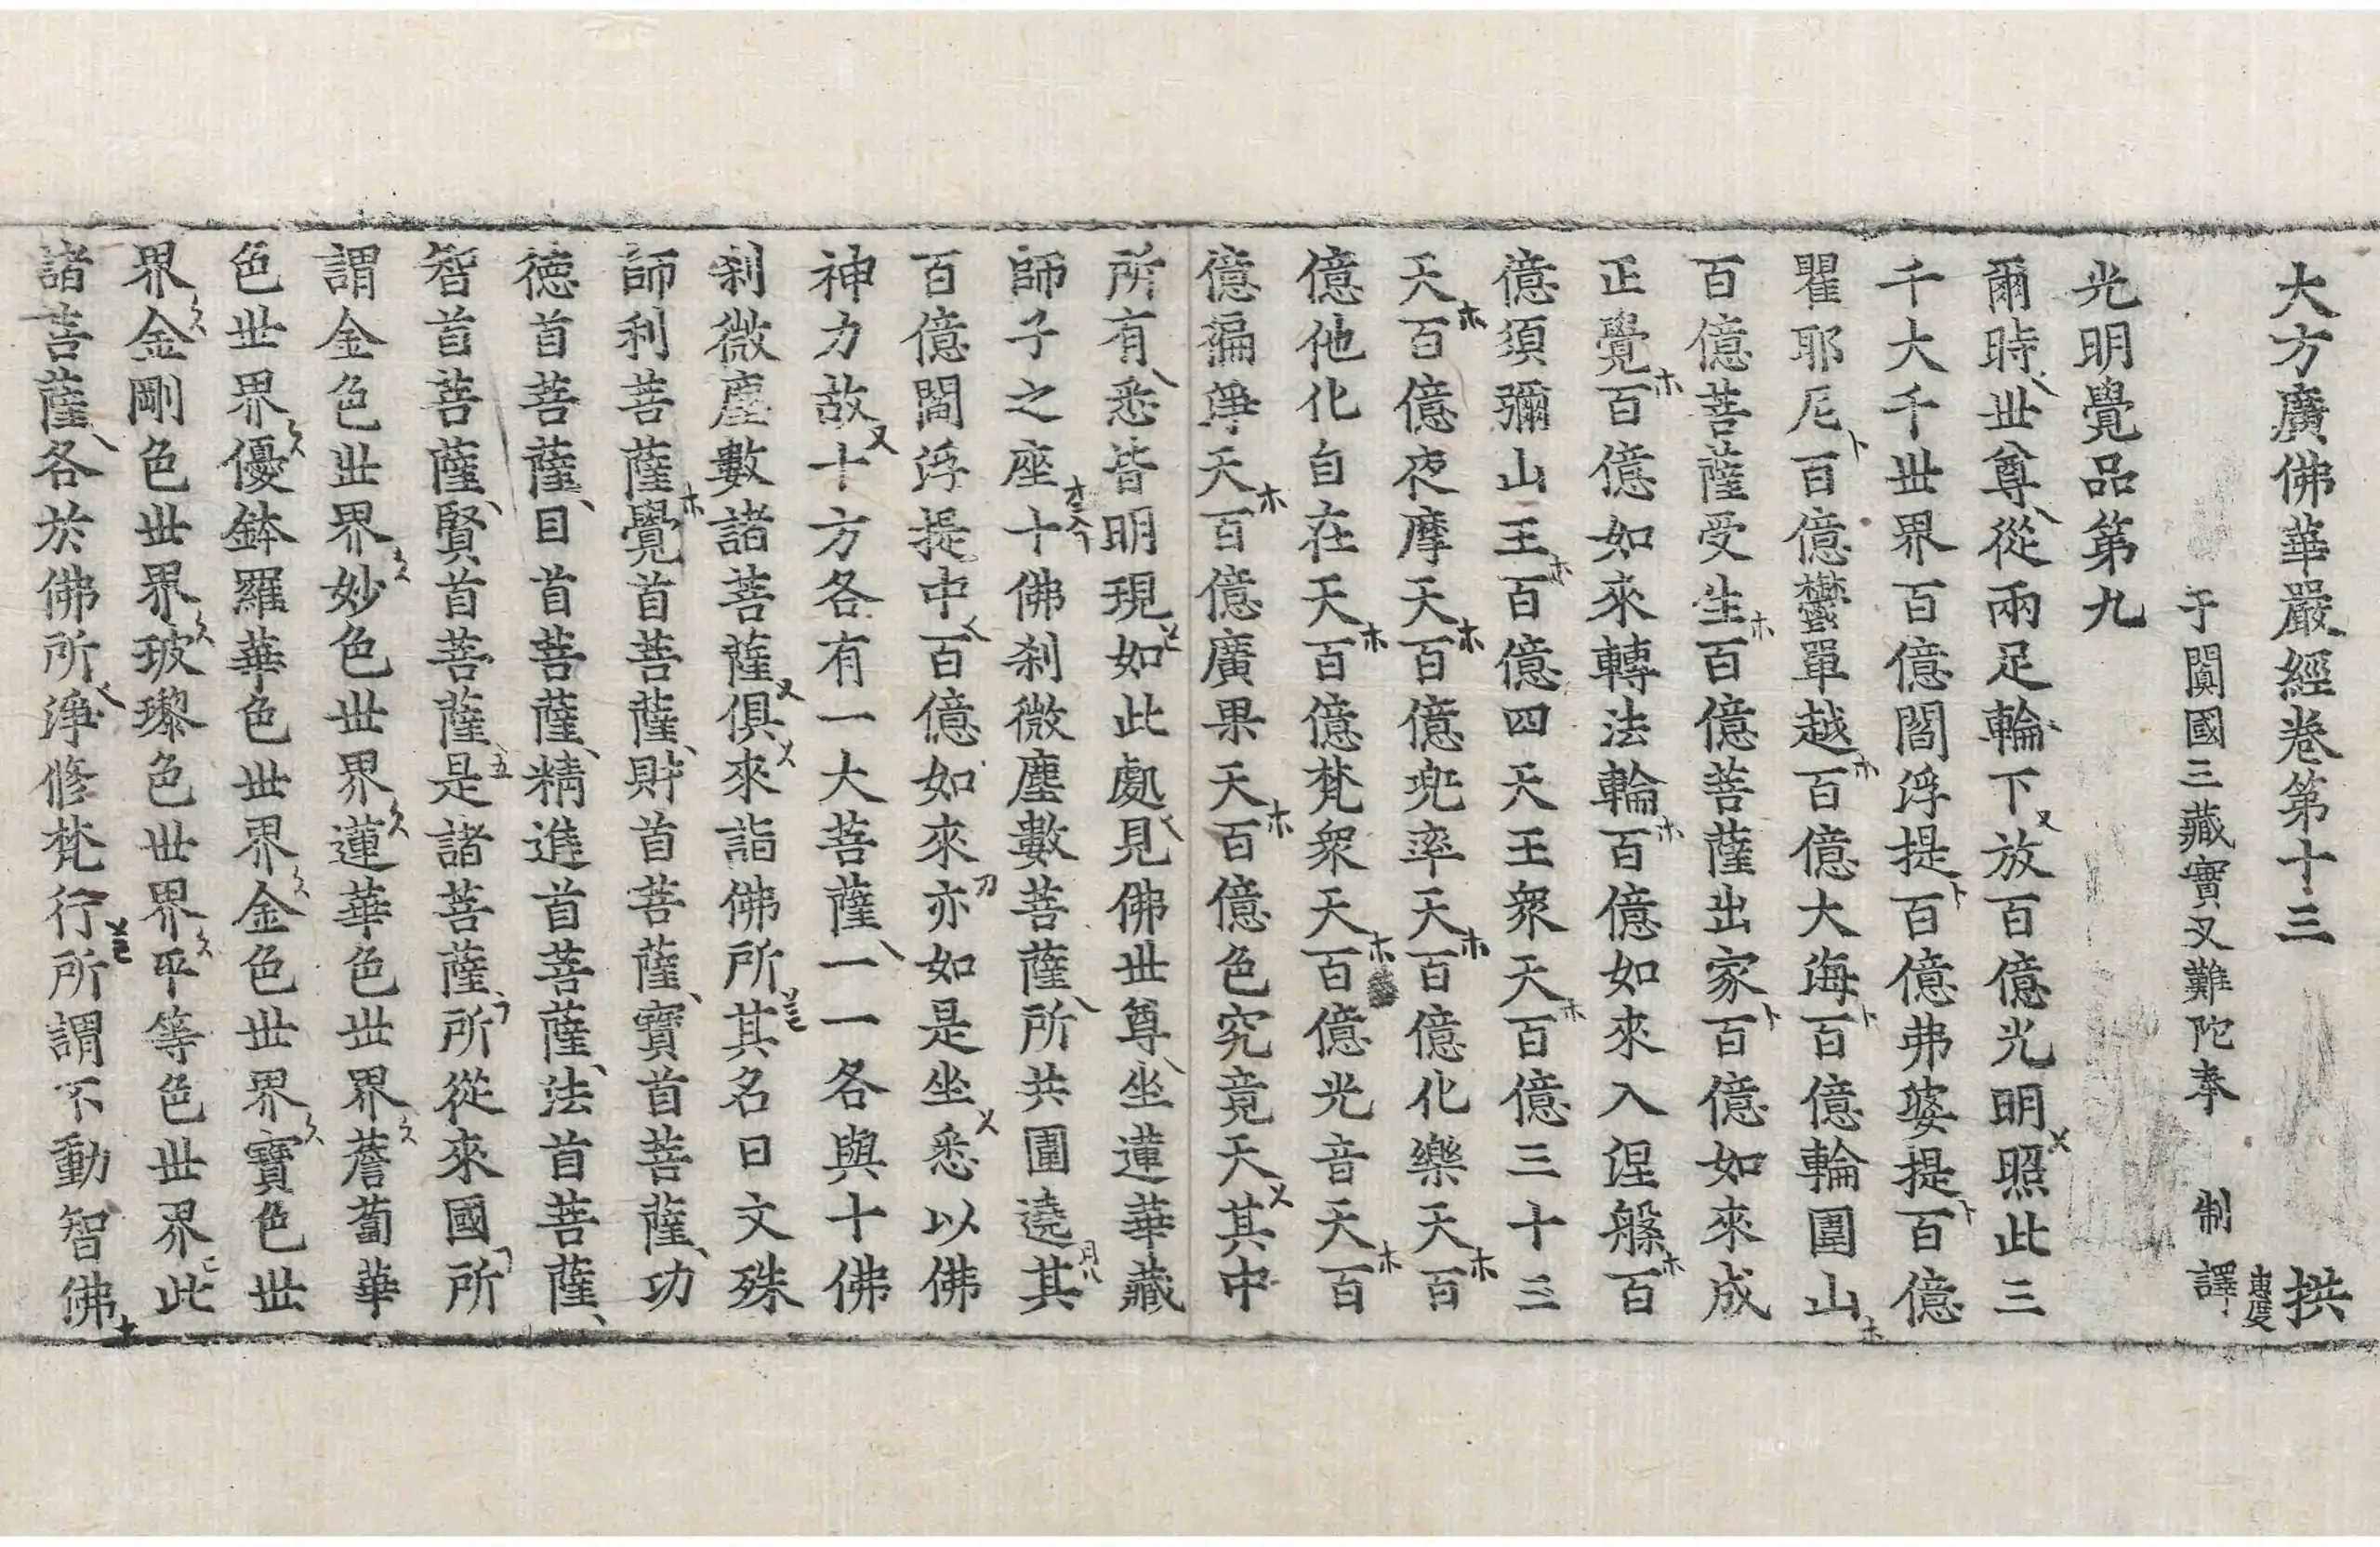 大方廣佛華嚴經卷第十三 拱
于闐國三藏實叉難陀奉 制譯
光明覺品第九
爾時世尊從兩足輪下放百億光明照此三
千大千世界百億閻浮提百億弗婆提百億
瞿耶尼百億欝單越百億大海百億輪圍山
百億菩薩受生百億菩薩出家百億如來成
正覺百億如來轉法輪百億如來入涅槃百
億須彌山王百億四天王衆天百億三十三
天百億夜摩天百億兜率天百億化樂天百
億他化自在天百億梵衆天百億光音天百
億遍淨天百億廣果天百億色究竟天其中
所有悉皆明現如此處見佛世尊坐蓮華藏
師子之座十佛剎微塵數菩薩所共圍遶其
百億閻浮提中百億如來亦如是坐悉以佛
神力故十方各有一大菩薩一一各與十佛
剎微塵數諸菩薩俱來詣佛所其名曰文殊
師利菩薩覺首菩薩財首菩薩寶首菩薩功
德首菩薩目首菩薩精進首菩薩法首菩薩
智首菩薩賢首菩薩是諸菩薩所從來國所
謂金色世界妙色世界蓮華色世界薝蔔華
色世界優鉢羅華色世界金色世界寶色世
界金剛色世界玻瓈色世界平等色世界此
諸菩薩各於佛所淨修梵行所謂不動智佛